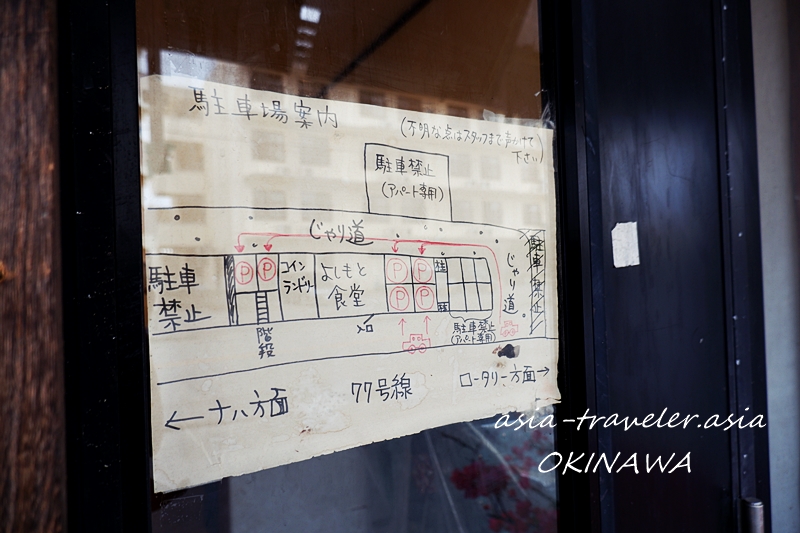 駐車場案内
(不明な点はスタッフまで声かけて
下さい)
駐車禁止
(アパート専用)
じゃり道
駐車
禁止
P P
コイン
ランドリー
よしもと
食堂
P P
P P
じゃり道
駐車禁止
階段
入口
駐車禁止
(アパート専用)
77号線
ロータリー方面→
←ナハ方面
asia-traveler.asia
OKINAWA